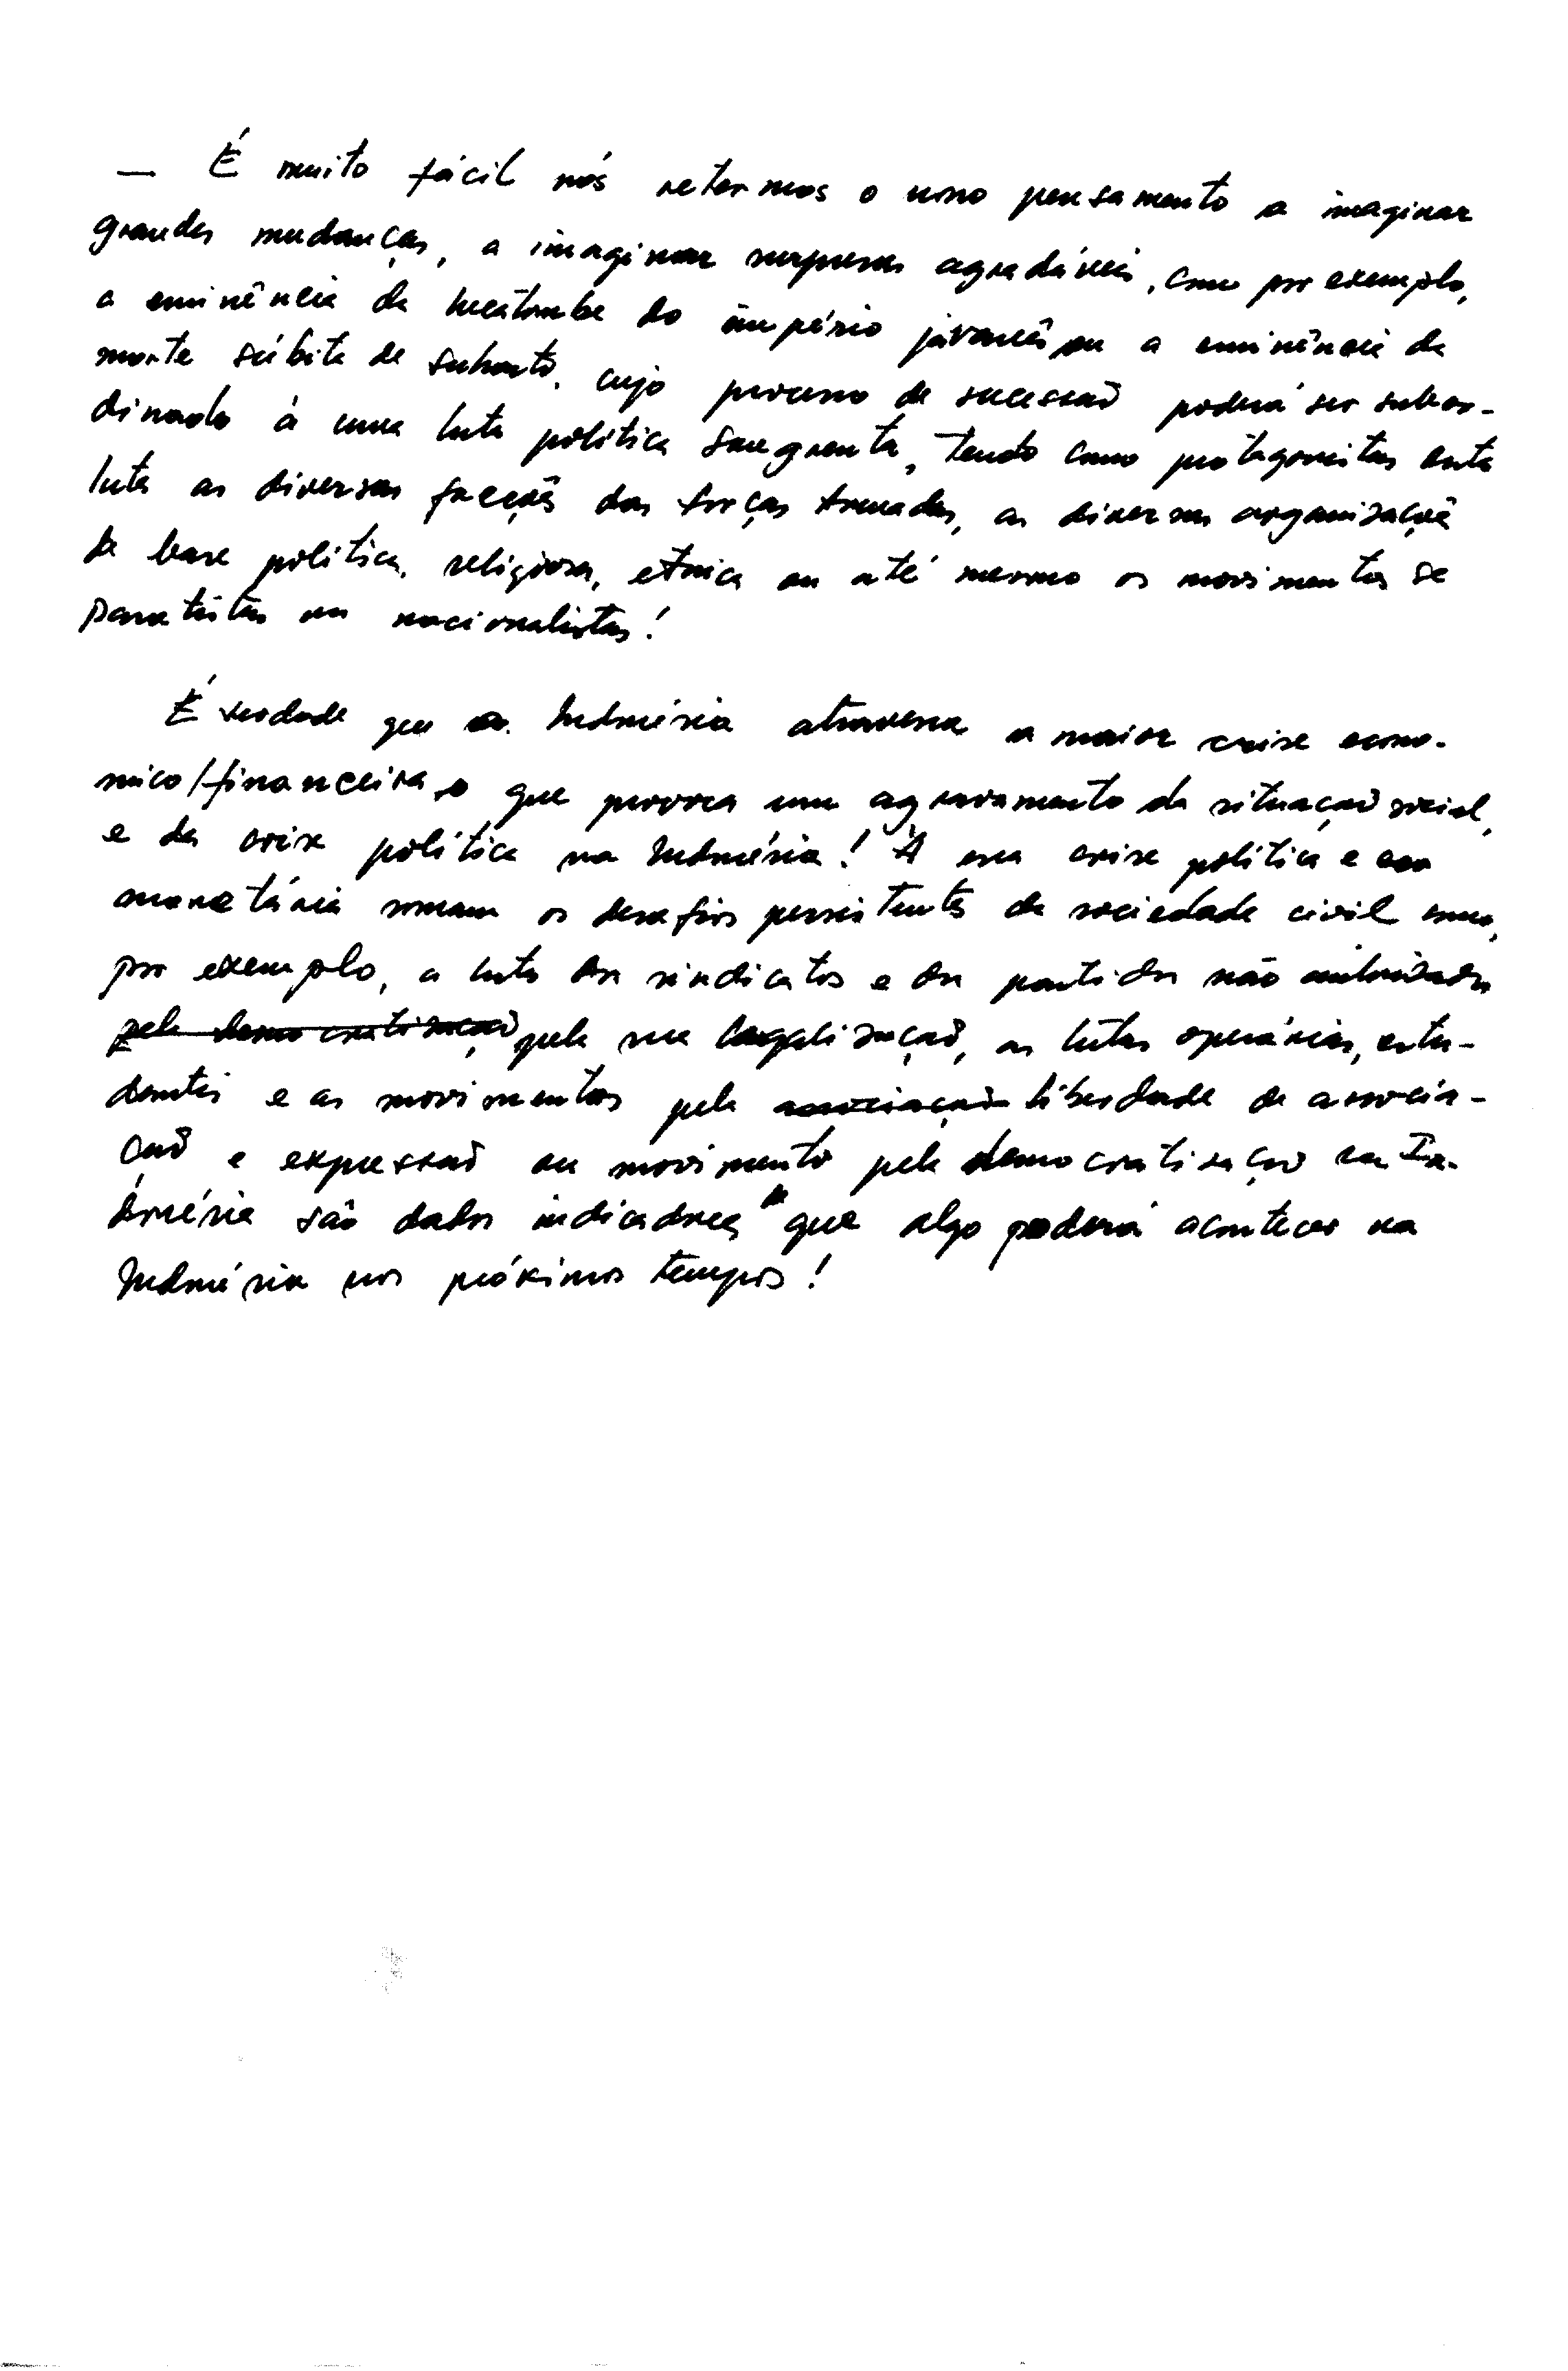 — É muito fácil nós retermos o nosso pensamento a imaginar
grandes mudanças, a imaginar surpresas agradáveis, como por exemplo,
a eminência da hecatombe do império javanês ou a eminência da
morte súbita de Suharto, cujo processo de sucessão poderá ser subor-
dinado à uma luta política sangrenta, tendo como protagonistas desta
luta as diversas facções das forças armadas, as diversas organizações
de base política, religiosa, etnica ou até mesmo os movimentos se
paratistas ou nacionalistas!
É verdade que a Indonésia atravessa a maior crise econo-
mico/financeira, o que provoca um agravamento da situação social,
e da crise política na Indonésia! À essa crise política e
monetária somam os desafios persistentes da sociedade civil como,
por exemplo, a luta dos sindicatos e dos partidos não autorizados
pela democratização pela sua legalização, as lutas operárias, estu-
dantis e os movimentos pela associação liberdade de associa-
ção e expressão ou movimento pela democratização na In-
donésia são dados indicadores de que algo poderá acontecer na
Indonésia nos próximos tempos!